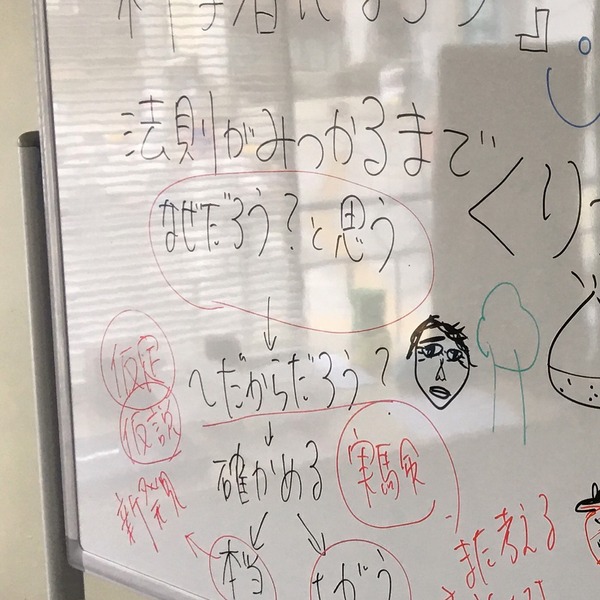 科学者になろう
法則がみつかるまで
くり
なぜだろう?と思う
仮定
〜だからだろう?
仮説
確かめる
実験
新発見
また考える
本当
ちがう